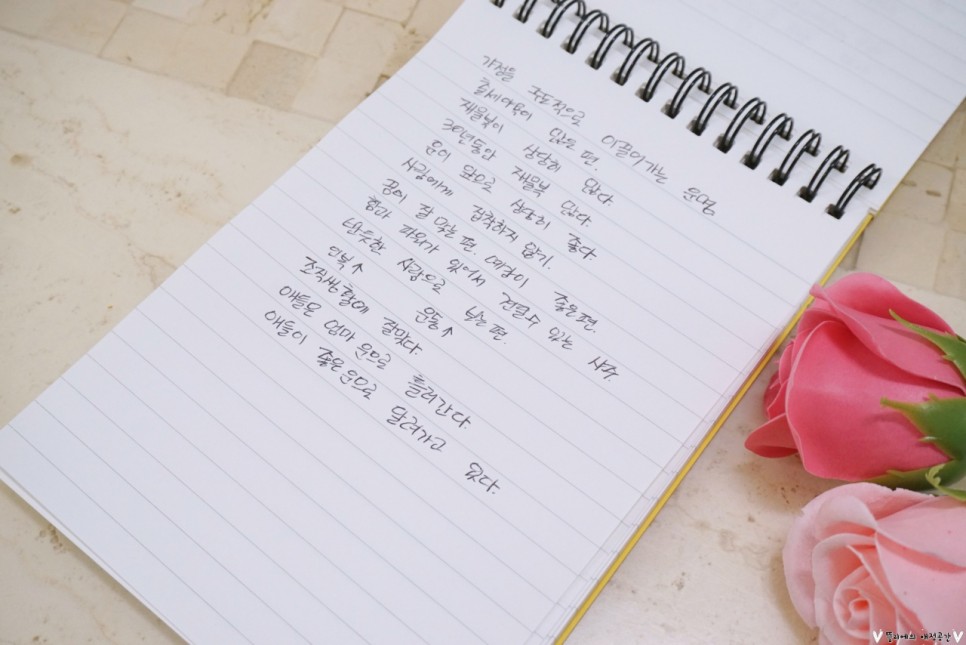 가정을 주도적으로 이끌어가는 운명
출세야욕이 많은 편.
재물복이 상당히 많다
30년동안 재물복 많다.
운이 앞으로 상당히 좋다.
사람에게 집착하지 않기.
꿈이 잘 맞는 편. 예감이 좋은편.
힘과 파워가 있어서 견딜수 있는 사주.
반듯한 사람으로 보는 편.
인복↑ 운동↑
조직생활에 잘맞다.
애들은 엄마 운으로 흘러간다.
애들이 좋은운으로 달려가고 있다.
애정공간